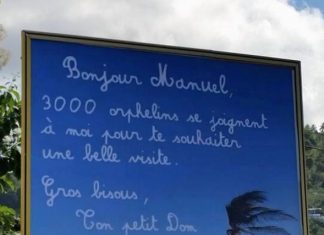 Bonjour Manuel,
3000 orphelins se joignent
à moi pour te souhaiter
une belle visite.
Gros bisous,
Ton petit Dom